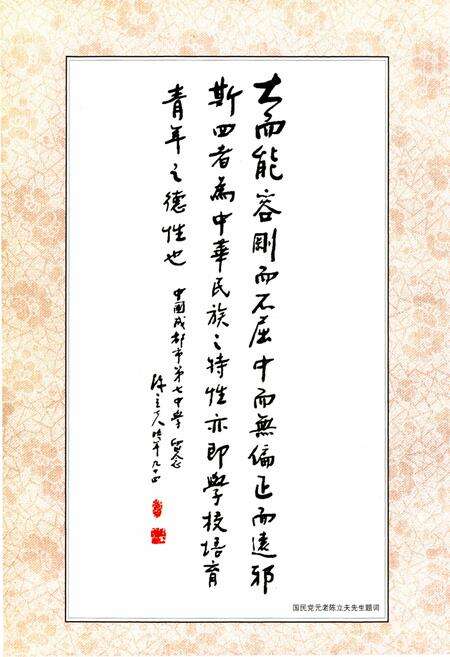 大而能容剛而不屈中而無偏正而遠邪
斯四者為中華民族之特性亦即學校培育
青年之德性也
中國成都市第七中學 留念
陳立夫 時年九十四
国民党元老陈立夫先生题词